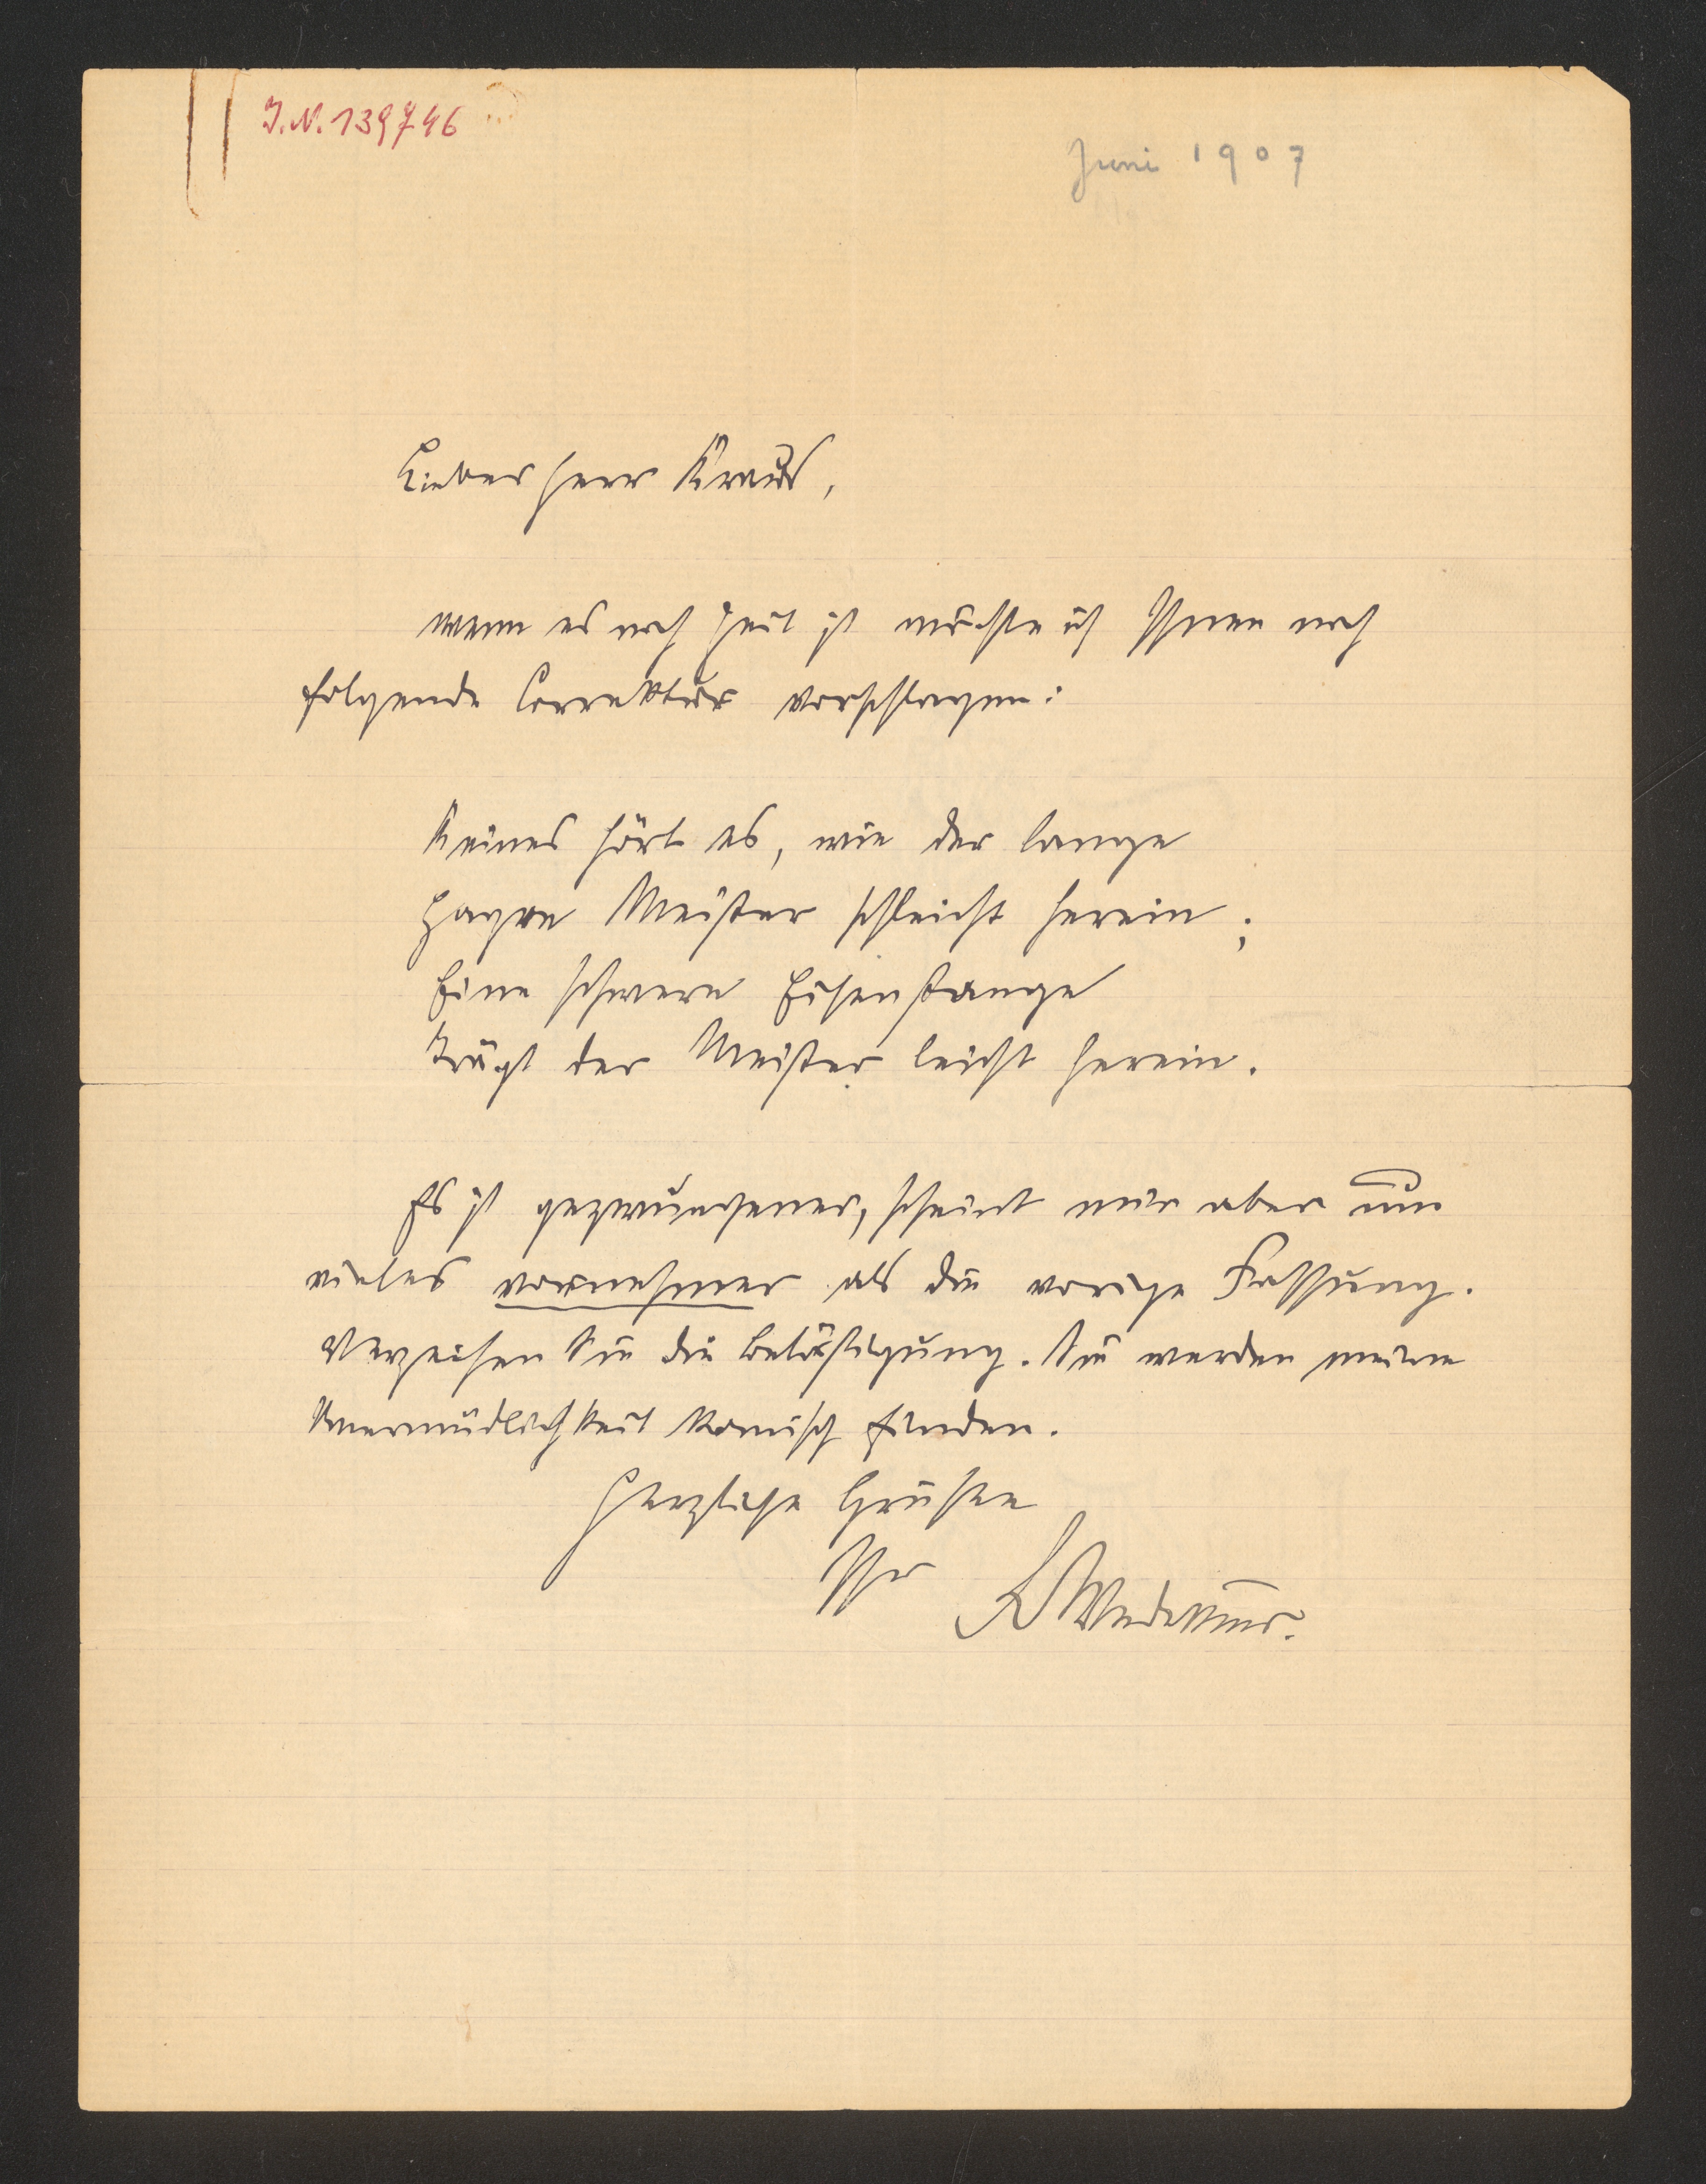 I.N. 139746
Juni 1907
Lieber Herr Kraus,
wenn es noch Zeit ist möchte ich Ihnen noch
folgende Correktur vorschlagen:
Keines hört es, wie der lange
Hagre Meister schleicht herein;
Eine schwere Eisenstange
Trägt der Meister leicht herein.
Es ist gezwungener, scheint mir aber um
vieles vornehmer als die vorige Fassung.
Verzeihen Sie die Belästigung. Sie werden meine
Unermüdlichkeit komisch finden.
Herzliche Grüße
Ihr FrWedekind.